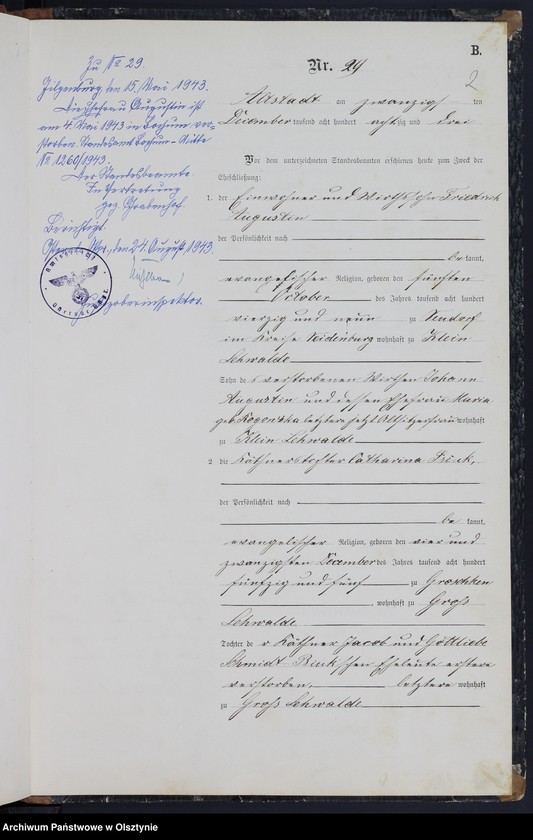 B.
Nr. 29
2
Zu No 29.
Gilgenburg, den 15. Mai 1943.
Die Ehefrau Augustin ist
am 4. Mai 1943 in Bochum ver-
storben. Standesamt Bochum-Mitte
No 1260/1943.
Der Standesbeamte
In Vertretung
gez.
Berichtigt.
den 24. August 1943.
Altstadt am zwanzig ten
December tausend acht hundert achtzig und drei
Vor dem unterzeichneten Standesbeamten erschienen heute zum Zweck der
Eheschließung:
1. der Einwohner und Wirthssohn Friedrich
Augustin
der Persönlichkeit nach
be kannt,
evangelischer Religion, geboren den fünften
October des Jahres tausend acht hundert
vierzig und neun zu
im Kreise Neidenburg wohnhaft zu Klein
Lehwalde
Sohn des verstorbenen Wirthen Johann
Augustin und dessen Ehefrau Maria
geb. letztere jetzt wohnhaft
zu Klein Lehwalde
2 die Käthnerstochter Catharina
der Persönlichkeit nach
be kannt,
evangelischer Religion, geboren den vier und
zwanzigsten December des Jahres tausend acht hundert
fünfzig und fünf zu Groeschken
, wohnhaft zu Groß
Lehwalde
Tochter de r Käthner Jacob und Gottliebe
Schmidt schen Eheleute erstere
verstorben, letztere wohnhaft
zu Groß Lehwalde
Archiwum Państwowe w Olsztynie